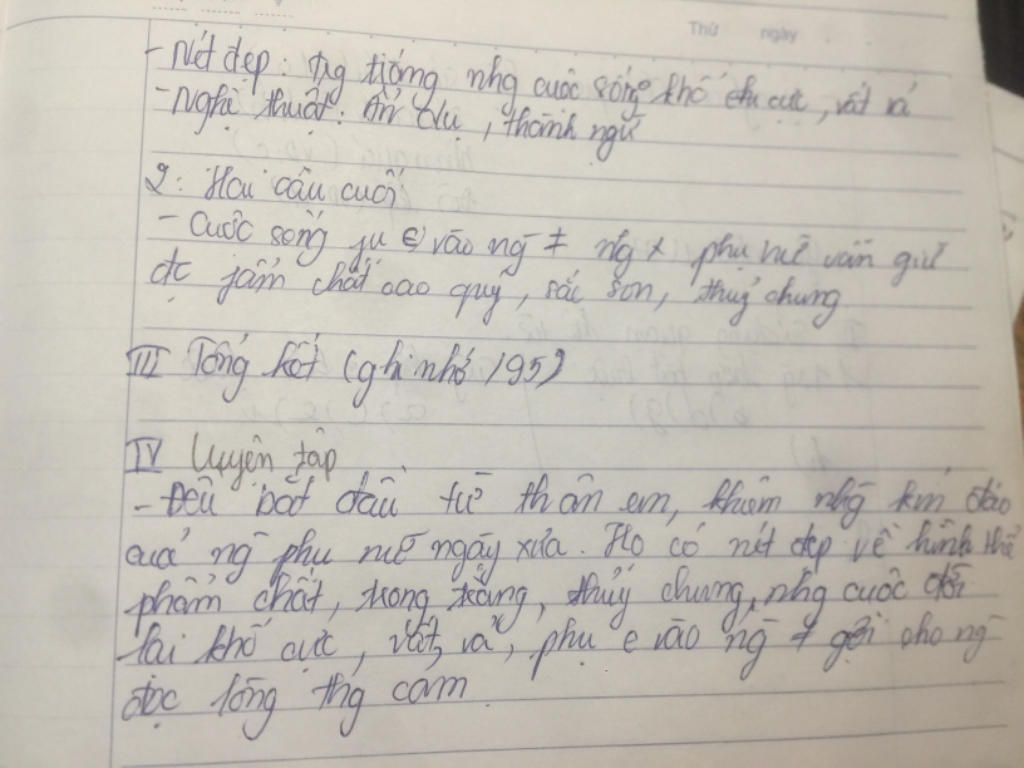 Thứ ngày
- Nét đẹp: trg trắng nhg cuộc sống khổ cực, vất vả
- Nghệ thuật: ẩn dụ, thành ngữ
2: Hai câu cuối
- Cuộc sống vào ng ≠ nhg phụ nữ vẫn giữ
đc phẩm chất cao quý, sắc son, thuỷ chung
III Tổng kết (ghi nhớ /95)
IV Luyện tập
- Đều bắt đầu từ thân em, khiêm nhg kín đáo
của ng phụ nữ ngày xưa. Họ có nét đẹp về hình thể
phẩm chất, trong trắng, thuỷ chung, nhg cuộc đời
lại khổ cực, vất vả, phụ e vào ng ≠ gợi cho ng
đọc lòng thg cảm